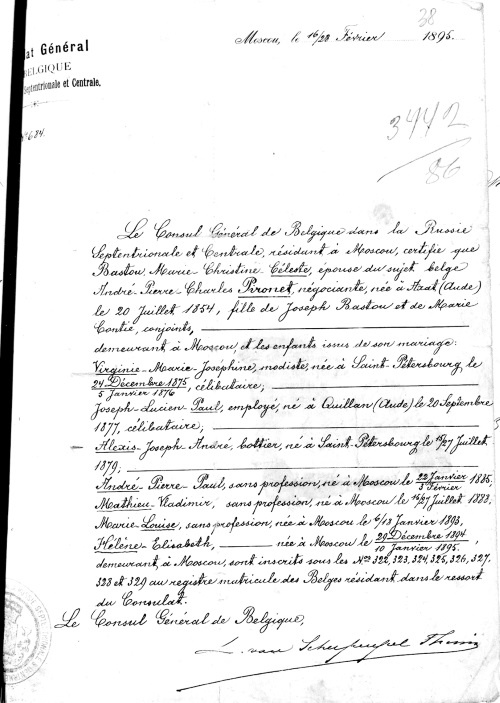 38
Moscou, le 16/28 Février 1895.
at Général
BELGIQUE
Septentrionale et Centrale.
No 684.
3442
86
Le Consul Général de Belgique dans la Russie
Septentrionale et Centrale, résidant à Moscou, certifie que
Bastou, Marie Christine Céleste, épouse du sujet belge
André-Pierre-Charles Pironet, négociante, née à Axat (Aude)
le 20 Juillet 1854, fille de Joseph Bastou et de Marie
Contié, conjoints,
demeurant à Moscou, et les enfants issus de son mariage:
Virginie-Marie-Josephine, modiste, née à Saint-Pétersbourg, le
24 Décembre 1875
5 Janvier 1876, célibataire;
Joseph-Lucien-Paul, employé, né à Quillan (Aude) le 20 Septembre
1877, célibataire;
Alexis-Joseph-André, bottier, né à Saint-Pétersbourg le 15/27 Juillet
1879;
André-Pierre-Paul, sans profession, né à Moscou le 22 Janvier
3 Février 1885,
Mathieu-Vladimir, sans profession, né à Moscou le 15/27 Juillet 1888,
Marie-Louise, sans profession, née à Moscou le 6/18 Janvier 1893,
Hélène-Elisabeth, née à Moscou le 29 Décembre 1894
10 Janvier 1895.
demeurant, à Moscou, sont inscrits sous les Nos 322, 323, 324, 325, 326, 327,
328 et 329 au registre matricule des Belges résidant dans le ressort
du Consulat.
Le Consul Général de Belgique,
L. van